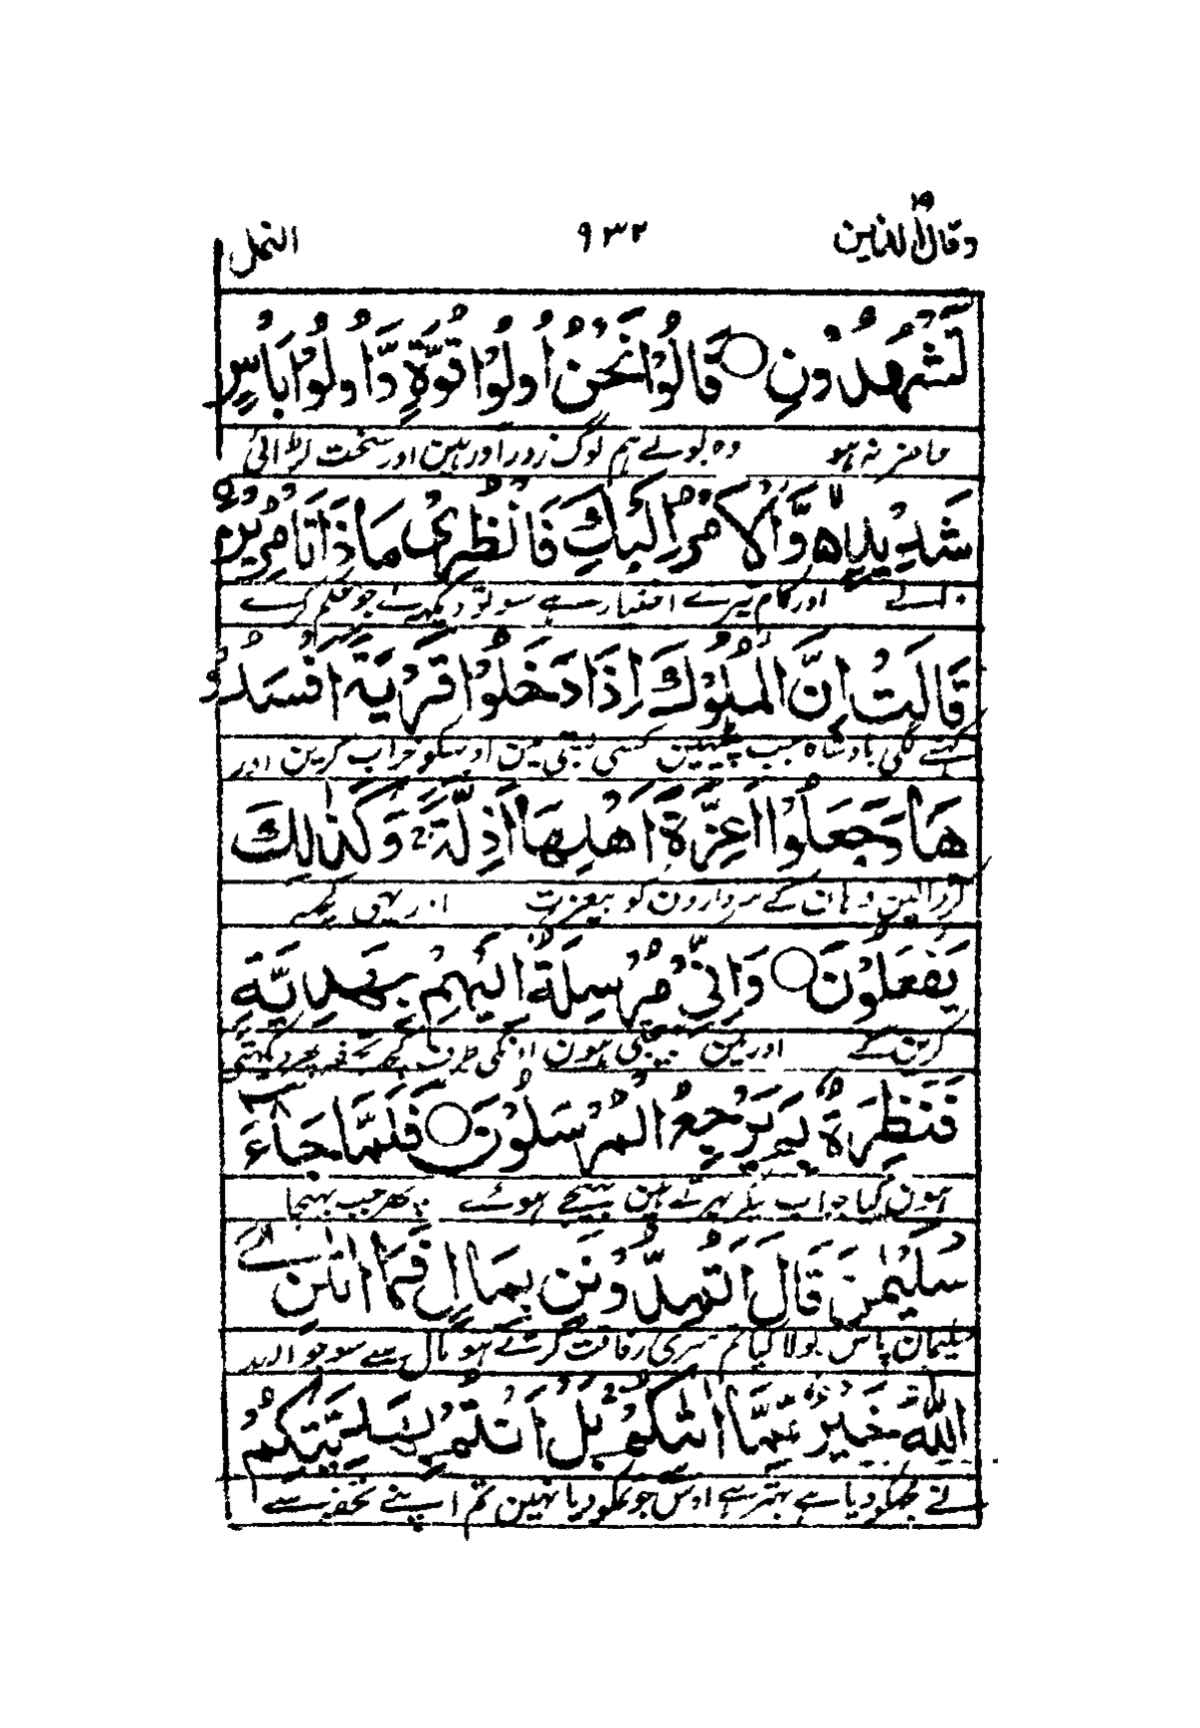 وقال الذین ۱۹ ۹۳۲ النمل
تَشْهَدُوْنِ ○ قَالُوْا نَحْنُ اُولُوْا قُوَّةٍ وَّاُولُوْا بَاْسٍ
حاضر نہ ہو وہ بولے ہم لوگ زور آور ہین اور سخت لڑائی
شَدِيْدٍ ۙ وَّالْاَمْرُ اِلَيْكِ فَانْظُرِيْ مَاذَا تَاْمُرِيْنَ ○
والے اور کام تیرے اختیار ہے سو تو دیکھ لے جو حکم کرے
قَالَتْ اِنَّ الْمُلُوْكَ اِذَا دَخَلُوْا قَرْيَةً اَفْسَدُوْ
کہنے لگی بادشاہ جب پیٹھین کسی بستی مین اوسکو خراب کرین اور
هَا وَجَعَلُوْا اَعِزَّةَ اَهْلِهَا اَذِلَّةً ۚ وَكَذٰلِكَ
کر ڈالین وہان کے سردارون کو بیعزت اور یہی کچھ
يَفْعَلُوْنَ ○ وَاِنِّيْ مُرْسِلَةٌ اِلَيْهِمْ بِهَدِيَّةٍ
کرین گے اور مین بھیجتی ہون اونکی طرف کچھ تحفہ پھر دیکھتی
فَنٰظِرَةٌۢ بِمَ يَرْجِعُ الْمُرْسَلُوْنَ ○ فَلَمَّا جَآءَ
ہون کیا جواب لیکر پھرتے ہین بھیجے ہوئے پھر جب پہنچا
سُلَيْمٰنَ قَالَ اَتُمِدُّوْنَنِ بِمَالٍ فَمَآ اٰتٰىنِۦَ
سلیمان پاس بولا کیا تم میری رفاقت کرتے ہو مال سے سو جو اللہ
اللّٰهُ خَيْرٌ مِّمَّآ اٰتٰىكُمْ ۚ بَلْ اَنْتُمْ بِهَدِيَّتِكُمْ
نے مجھکو دیا ہے بہتر ہے اوس جو تمکو دیا نہین تم اپنے تحفہ سے